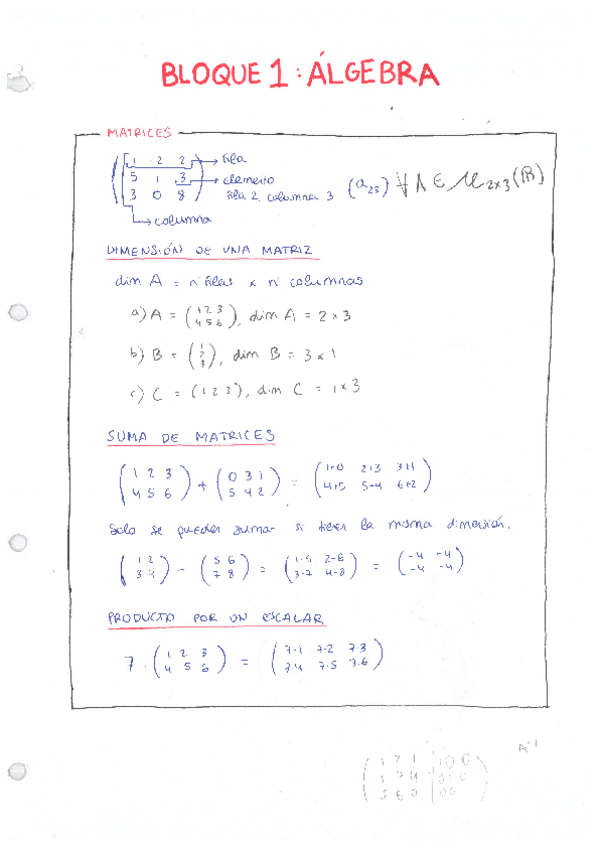 BLOQUE 1: ÁLGEBRA
MATRICES
( 1 2 2 ) → fila
( 5 1 3 ) → elemento
( 3 0 8 ) fila 2, columna 3 (a₂₃) ∀ A ∈ M₂ₓ₃(R)
→ columna
DIMENSIÓN DE UNA MATRIZ
dim A = nº filas x nº columnas
a) A = (1 2 3 / 4 5 6), dim A = 2 x 3
b) B = (1 / 2 / 3), dim B = 3 x 1
c) C = (1 2 3), dim C = 1x3
SUMA DE MATRICES
(1 2 3 / 4 5 6) + (0 3 1 / 5 4 2) = (1+0 2+3 3+1 / 4+5 5+4 6+2)
Solo se pueden sumar si tienen la misma dimensión.
(1 2 / 3 4) - (5 6 / 7 8) = (1-5 2-6 / 3-7 4-8) = (-4 -4 / -4 -4)
PRODUCTO POR UN ESCALAR
7 · (1 2 3 / 4 5 6) = (7·1 7·2 7·3 / 7·4 7·5 7·6)